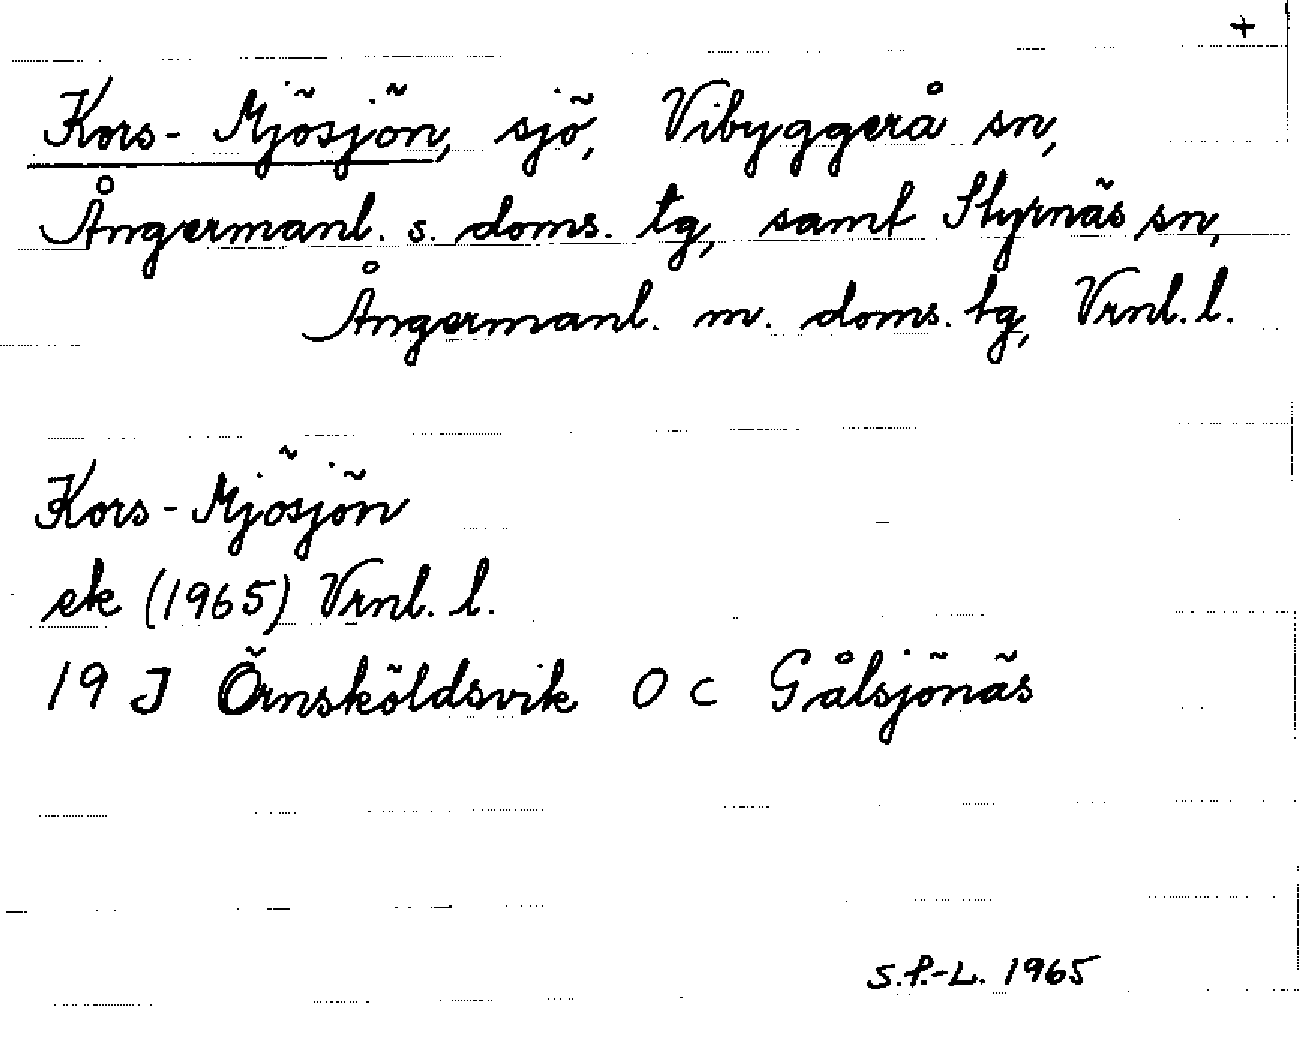 +
Kors-Mjösjön, sjö, Vibyggerå sn,
Ångermanl. s. doms. tg, samt Styrnäs sn,
Ångermanl. m. doms. tg, Vrnl. l.
Kors-Mjösjön
ek (1965) Vrnl. l.
19 J Örnsköldsvik O c Gålsjönäs
S.P.-L. 1965